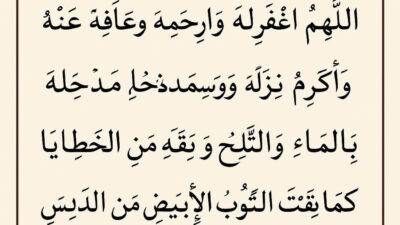 اللَّهِمُ اغْفَرِلهَ وَارِحَمِهَ وعَافَةِ عَنْهُ
وَأكَرِمُ نِزَلَهَ وَوَسِمَدخُلِ مَدْحَلِهَ
بِالماءِ وَالتَّلِحُ وَ يَقَهِ مَنِ الخَطِايَا
كمَا يَقَتَ التَوُبُ الأِبَيَضِ مَن الدَيِسَ